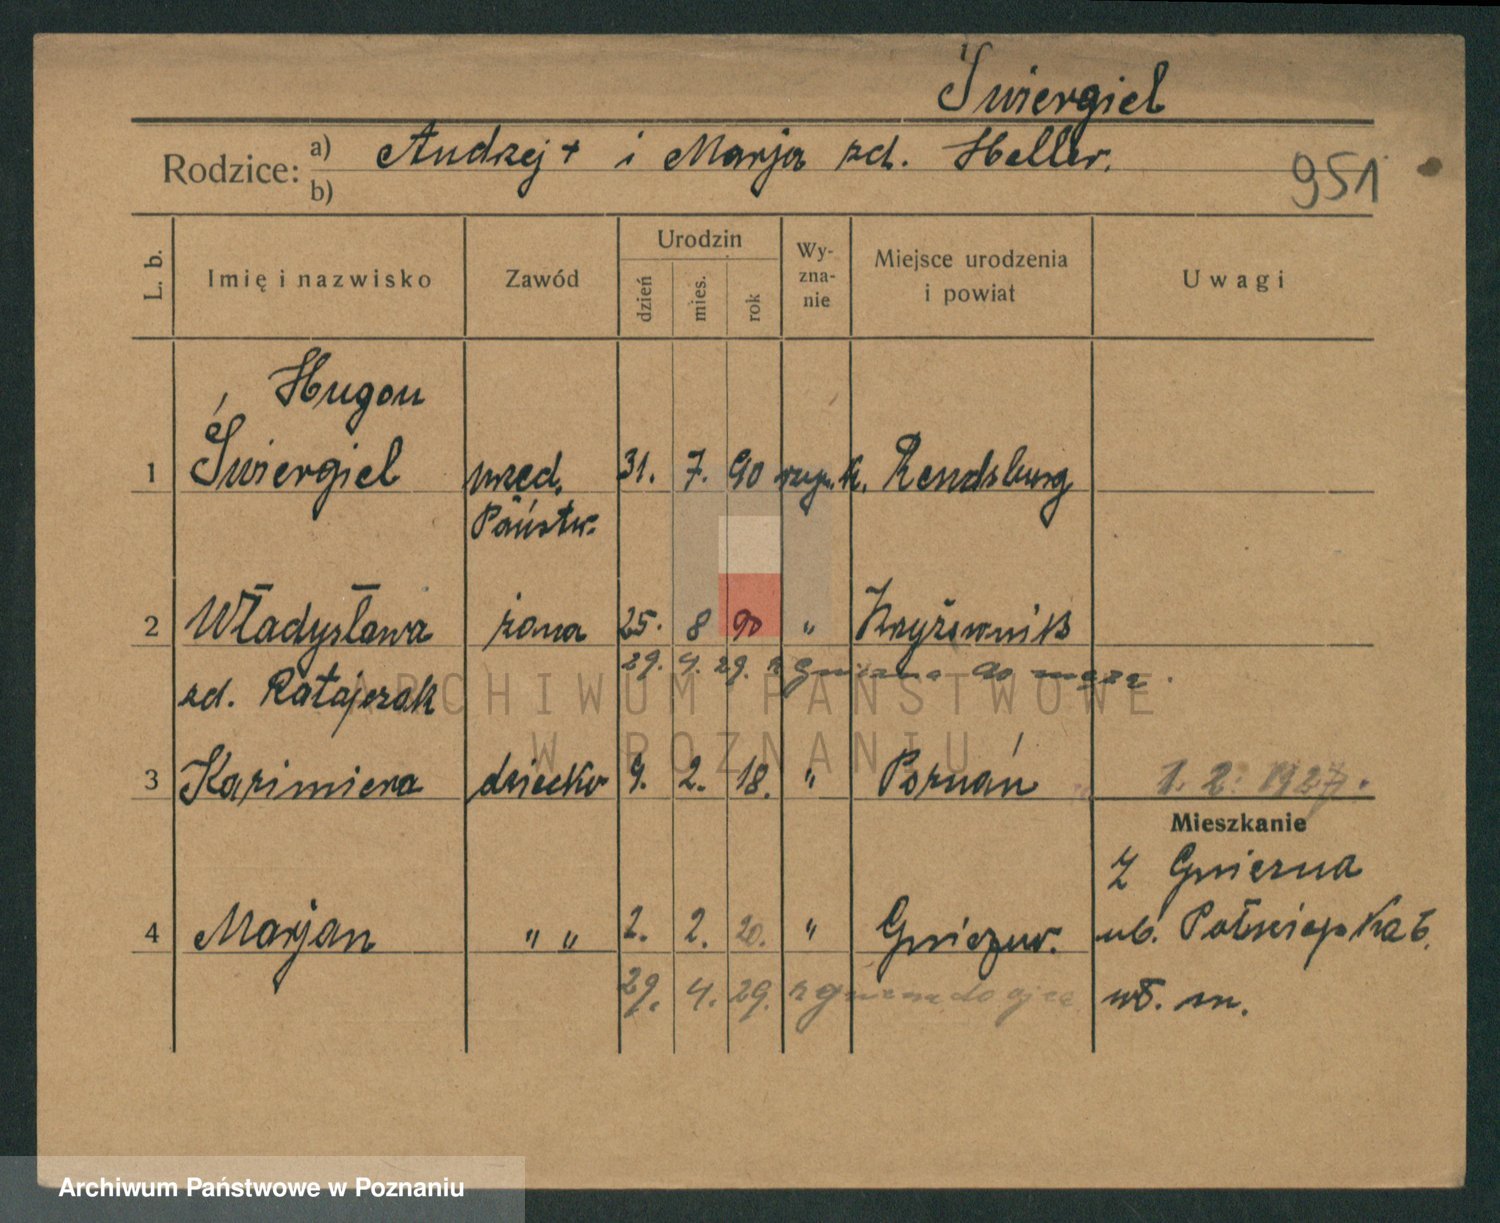 Świergiel
Rodzice: a) Andrzej + i Marja zd. Heller.
b)
951
L. b. Imię i nazwisko Zawód Urodzin dzień mies. rok Wy-zna-nie Miejsce urodzenia i powiat Uwagi
Hugon
1 Świergiel urzed. 31. 7. 90 rzym. k. Rendsburg
Państw.
2 Władysława żona 25. 8 90 " Krzyżownik
29. 4. 29. z Gniezna do męża.
zd. Ratajczak
ARCHIWUM PAŃSTWOWE
W POZNANIU
3 Kazimiera dziecko 9. 2. 18. " Poznań 1. 2. 1927.
Mieszkanie
Z Gniezna
4 Marjan " " 2. 2. 20. " Gniezno. ul. 6.
29. 4. 29. z Gniezna do ojca wł. m.
Archiwum Państwowe w Poznaniu